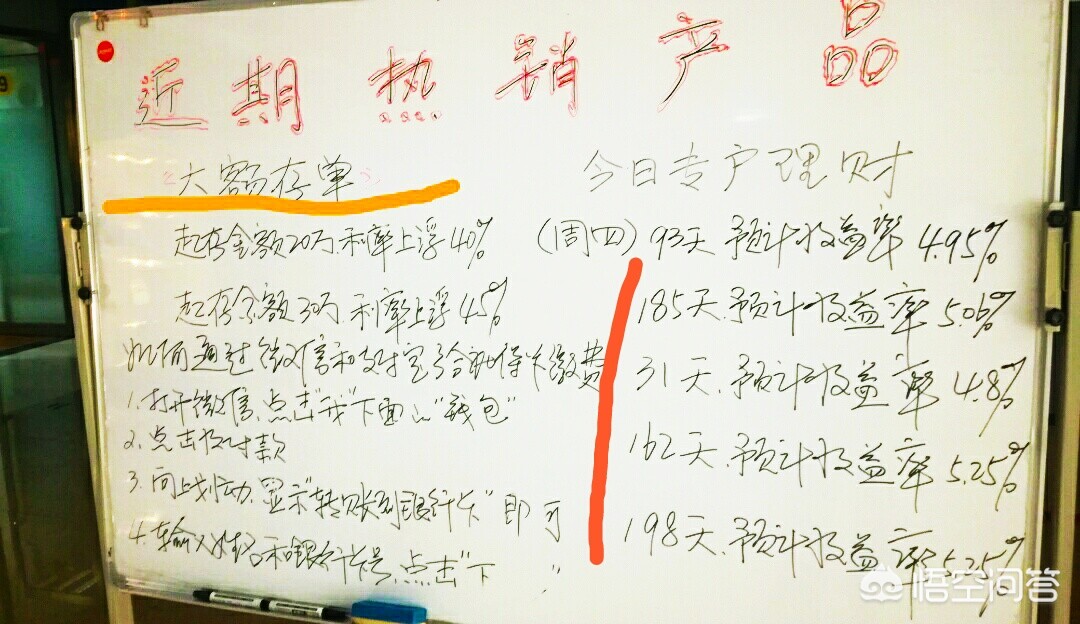 近期热销产品
"大额存单"
起存金额20万.利率上浮40%
起存金额30万.利率上浮45%
如何通过微信和支付宝给新保卡缴费
1.打开微信.点击"我"下面的"钱包"
2.点击收付款
3.向上划动.显示"转账到银行卡"即可
4.输入姓名和银行卡号.点击"下 "
今日专户理财
(周四)93天.预计收益率4.95%
185天.预计收益率5.06%
31天.预计收益率4.8%
162天.预计收益率5.25%
198天.预计收益率5.25%
悟空问答